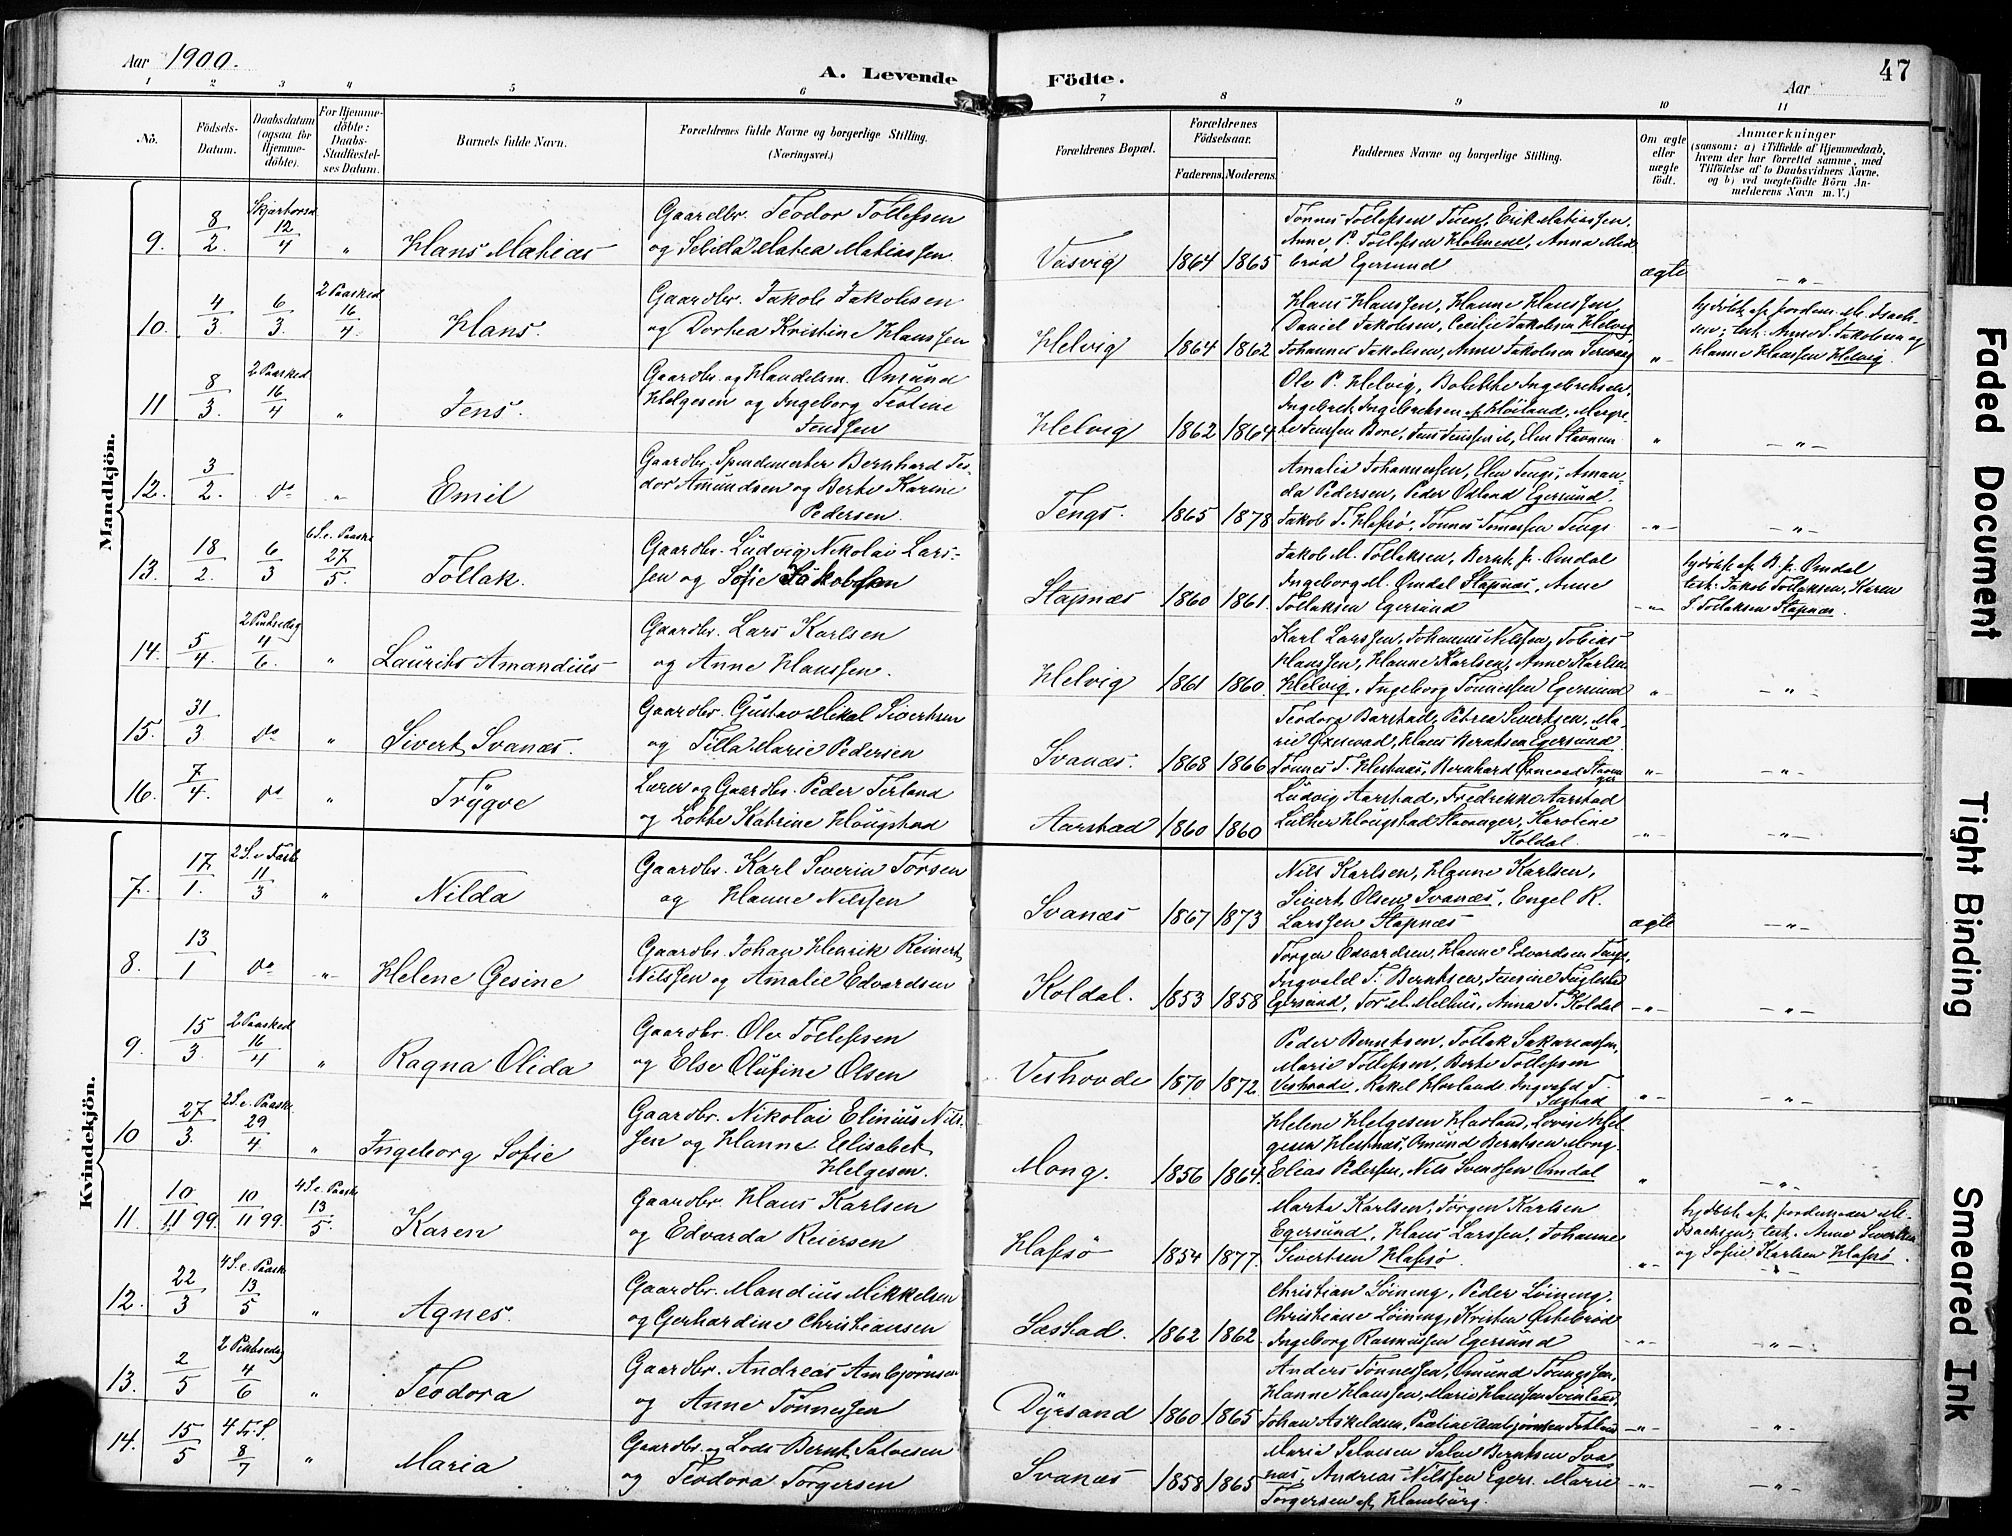 Aar 1900.
A. Levende Födte.
Aar
47
1 2 3 4 5 6 7 8 9 10 11
No.
Födsels-Datum.
Daabsdatum (ogsaa for Hjemme-döbte).
For Hjemme-döbte: Daabs-Stadfæstel-ses Datum.
Barnets fulde Navn.
Forældrenes fulde Navne og borgerlige Stilling. (Næringsvei.)
Forældrenes Bopæl.
Forældrenes Födselsaar.
Faderens. Moderens.
Faddernes Navne og borgerlige Stilling.
Om ægte eller uægte födt.
Anmærkninger
(saasom: a) i Tilfælde af Hjemmedaab,
hvem der har forrettet samme, med
Tilföielse af to Daabsvidners Navne,
og b) ved uægtefödte Börn An-
melderens Navn m. V.)
Mandkjön.
9. 8/2. Skjærtorsd 12/4 " Hans Matias
Gaardbr. Teodor Tollefsen
og Selilla Matea Matiassen.
Vasvig 1864 1865
Tønnes Tollefsen Tuen, Erik Matiassen,
Anne P. Tollefsen Holmene, Anna Mid
brød Egersund
ægte -"-
10. 4/3 6/3. 2 Paasked 16/4. Hans.
Gaardbr. Jakob Jakobsen
og Dorthea Kristine Hanssen
Helvig 1864 1862
Hans Hanssen, Hanne Hanssen,
Daniel Jakobsen, Cecilie Jakobsen Helvig,
Johannes Jakobsen, Anne Jakobsen
"
hjdøbt af fordem. M. Isach-
sen; test. Anne S. Jakobsen og
Hanne Hanssen Helvig.
11 8/3. 2 Paasked 16/4 " Jens.
Gaardbr. og Handelsm. Omund
Helgesen og Ingeborg Testine
Jenssen
Helvig 1862 1864
Ole P. Helvig, Bolette Ingebretsen,
Ingebret Ingebretsen af Høiland, Margre
te Jenssen Bore, Jens Jenssen ib, Elen Stavnem.
" -"-
12. 3/2. do " Emil
Gaardbr. Spindemester Bernhard Teo-
dor Amundsen og Berte Karine
Pedersen.
Tengs. 1865 1878
Amalie Johannessen, Elen Tengs, Aman-
da Pedersen, Peder Ødland Egersund.
Jakob T. Hafsø, Tønnes Tomassen Tengs
-"- "
13. 18/2. 6/3 6 S. e. Paaske 27/5. Tollak.
Gaardbr. Ludvig Nikolai Lars-
sen og Sofie Jakobsen
Stapnæs 1860 1861.
Jakob M. Tollaksen, Bernt P. Omdal
Ingeborg M. Omdal Stapnæs, Anne
Tollaksen Egersund
-"-
hjdøbt af B. P. Omdal
test: Jakob Tollaksen, Karen
S. Tollaksen Stapnæs.
14. 5/4. 2 Pintsedag 4/6. " Laurits Amandius
Gaardbr. Lars Karlsen
og Anne Hanssen.
Helvig 1861 1860.
Karl Larssen, Johannes Nilssen, Tobias
Hanssen, Hanne Karlsen, Anne Karlsen
Helvig, Ingeborg Tønnessen Egersund
" "
15. 31/3 do " Sivert Svanæs.
Gaardbr. Gustav Mikal Sivertsen
og Tilla Marie Pedersen
Svanæs. 1868 1866
Teodora Barstad, Petrea Sivertsen, Ma-
rie Ørnevad, Hans Berntsen Egersund
Tønnes T. Hestnæs, Bernhard Ørnevad Stavanger
-"- -"-
16. 7/4. do " Trygve
Lærer og Gaardbr. Peder Terland
og Lotte Katrine Hougstad
Aarstad 1860 1860
Ludvig Aarstad, Fredrikke Aarstad
Luther Hougstad Stavanger, Karoline
Koldal.
-"- -"-
Kvindekjön.
7. 17/1. 2 S. e Fast 11/3 " Nilda
Gaardbr. Karl Severin Torsen
og Hanne Nilssen
Svanæs 1867 1873
Nils Karlsen, Hanne Karlsen,
Sivert Olsen Svanæs, Engel R.
Larssen Stapnæs
ægte -"-
8. 13/1 do -"- Helene Gesine
Gaardbr. Johan Henrik Reinert
Nilssen og Amalie Edvardsen
Koldal. 1853 1858
Torger Edvardsen, Hanne Edvardsen Tengs,
Ingvald T. Berntsen, Teerine Fuglestad
Egersund, Tor M. Mælhus, Anna T. Koldal
-"- -"-
9. 15/3. 2 Paasked 16/4 " Ragna Olida
Gaardbr. Ole Tollefsen
og Else Olufine Olsen
Vestvode 1870 1872.
Peder Berntsen, Tollak Sakariassen,
Marie Tollefsen, Berte Tollefsen
Vestvode, Rakel Hovland, Ingvald T.
Sæstad
-"- -"-
10 27/3. 2 S. e. Paaske 29/4 " Ingeborg Sofie
Gaardbr. Nikolai Elinius Nils-
sen og Hanne Elisabet
Helgesen.
Mong. 1856 1864.
Helene Helgesen Havland, Lovise Hel
gesen Hestnæs, Omund Berntsen Mong
Elias Pedersen, Nils Svendsen Omdal
" -"-
11. 10/11 99. 10/11 99. 4 S. e. Paaske 13/5. Karen
Gaardbr. Hans Karlsen
og Edvarda Reiersen
Hafsø 1854 1877.
Marta Karlsen, Jørgen Karlsen
Egersund, Hans Larssen, Johanne
Sivertsen Hafsø.
-"-
hjdøbt af jordemoder M.
Isachsen; test. Anne Sivertsen
og Sofie Karlsen Hafsø.
12. 22/3 4 S. e. Paask 13/5 " Agnes.
Gaardbr. Mandius Mikkelsen
og Gerhardine Christiansen
Sæstad. 1862 1862.
Christian Løining, Peder Løining,
Christiane Løining, Kristen Østebrød
Ingeborg Rasmussen Egersund
-"- -"-
13. 2/5 2 Pintsedag 4/6 " Teodora
Gaardbr. Andreas Ambjørnsen
og Anne Tønnessen
Dyrsand 1860 1865
Anders Tønnessen, Omund Toungssen,
Hanne Hanssen, Marie Hanssen Svinland,
Johan Askeldsen, Pauline Ambjørnsen
-"- "
14. 15/5 4 Tr. S. 8/7 " Maria
Gaardbr. og Lods Bernt Salvesen
og Teodora Torgersen
Svanæs 1858 1865
Marie Salvesen Salve Berntsen Sva
næs, Andreas Nilssen Egers. Marie
Torgersen af Hamburg.
-"- -"-
Faded Document
Tight Binding
Smeared Ink